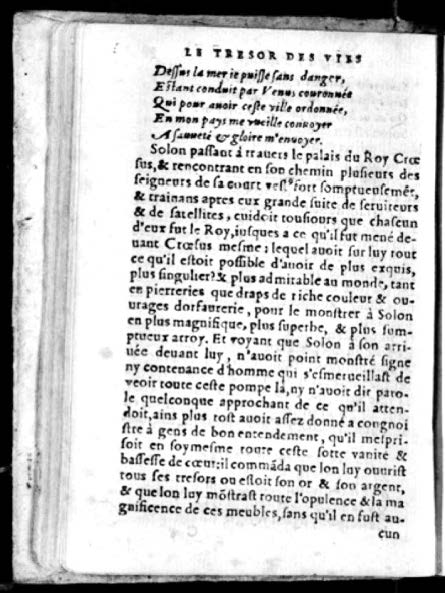 LE TRESOR DES VIES
Dessus la mer ie puisse sans danger,
Estant conduit par Venus couronnée
Qui pour auoir ceste ville ordonnée,
En mon pays me vueille conuoyer
A sauueté & gloire m'enuoyer.
Solon passant à trauers le palais du Roy Crœ
sus, & rencontrant en son chemin plusieurs des
seigneurs de sa court vest⁹ fort somptueusemēt,
& trainans apres eux grande suite de seruiteurs
& de satellites, cuidoit tousiours que chascun
d'eux fut le Roy, iusques a ce qu'il fut mené de-
uant Crœsus mesme: lequel auoit sur luy tout
ce qu'il estoit possible d'auoir de plus exquis,
plus singulier, & plus admirable au monde, tant
en pierreries que draps de riche couleur & ou-
urages dorfaurerie, pour le monstrer à Solon
en plus magnifique, plus superbe, & plus sum-
ptueux arroy. Et voyant que Solon à son arri-
uée deuant luy, n'auoit point monstré signe
ny contenance d'homme qui s'esmerueillast de
veoir toute ceste pompe là, ny n'auoit dit paro-
le quelconque approchant de ce qu'il atten-
doit, ains plus tost auoit assez donné a congnoi
stre à gens de bon entendement, qu'il mespri-
soit en soymesme toute ceste sotte vanité &
bassesse de cœur: il commāda que lon luy ouurist
tous ses tresors ou estoit son or & son argent,
& que lon luy mōstrast toute l'opulence & la ma
gnificence de ces meubles, sans qu'il en fust au-
cun